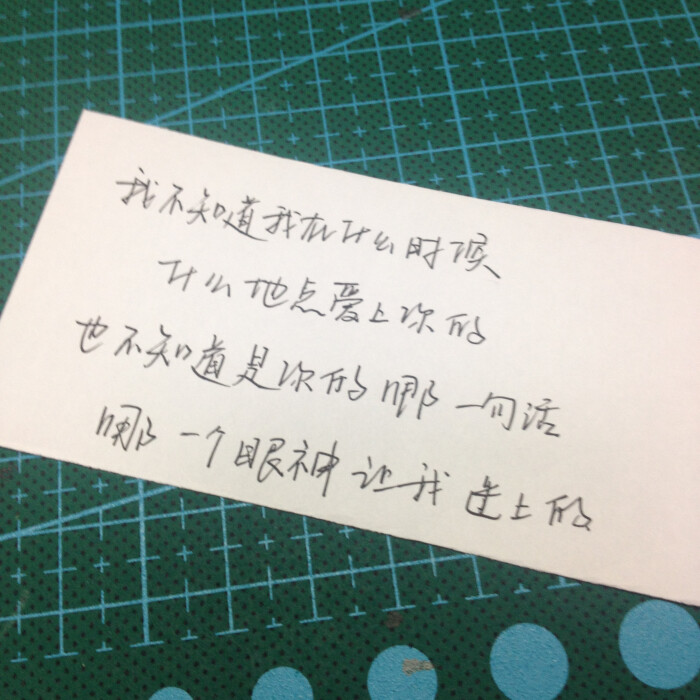 我不知道我在什么时候
什么地点爱上你的
也不知道是你的哪一句话
哪一个眼神让我迷上的